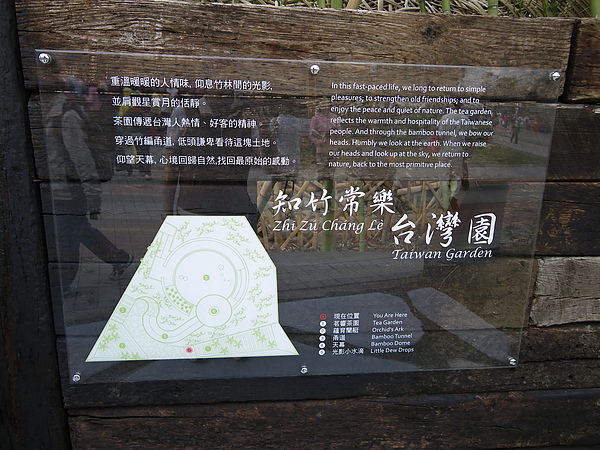 重溫暖暖的人情味, 仰息竹林間的光影,
並肩觀星賞月的恬靜。
茶園傳遞台灣人熱情、好客的精神。
穿過竹編甬道, 低頭謙卑看待這塊土地。
仰望天幕, 心境回歸自然,找回最原始的感動。
In this fast-paced life, we long to return to simple
pleasures; to strengthen old friendships; and to
enjoy the peace and quiet of nature. The tea garden,
reflects the warmth and hospitality of the Taiwanese
people. And through the bamboo tunnel, we bow our
heads. Humbly we look at the earth. When we raise
our heads and look up at the sky, we return to
nature, back to the most primitive place.
知竹常樂
Zhi Zu Chang Lè
台灣園
Taiwan Garden
現在位置 You Are Here
1 茗饗茶園 Tea Garden
2 蘊育蘭艙 Orchid's Ark
3 甬道 Bamboo Tunnel
4 天幕 Bamboo Dome
5 光影小水滴 Little Dew Drops